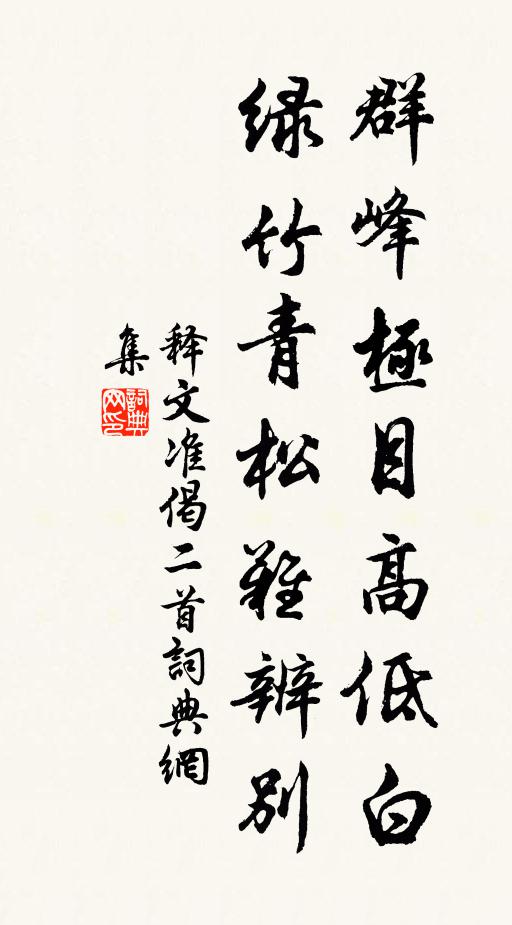 群峰極目高低白
绿竹青松難辨别
释文准偈二首詞典網
集
詞典網印